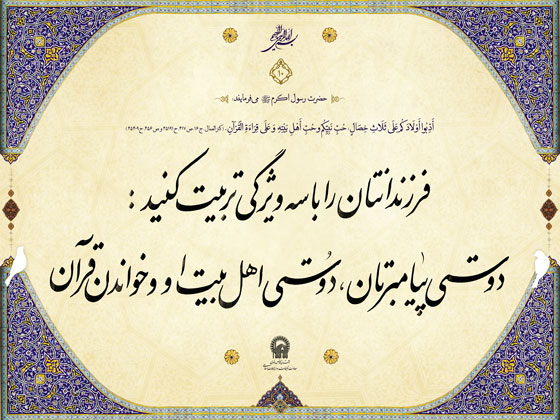 ۱۰
حضرت رسول اکرم ﷺ می‌فرمایند:
أَدِّبُوا أَوْلَادَكُمْ عَلَى ثَلَاثِ خِصَالٍ، حُبِّ نَبِيِّكُمْ وَ حُبِّ أَهْلِ بَيْتِهِ وَ عَلَى قِرَاءَةِ الْقُرْآنِ.
فرزندانتان را با سه ویژگی تربیت کنید :
دوستی پیامبرتان، دوستی اهل بیت او و خواندن قرآن